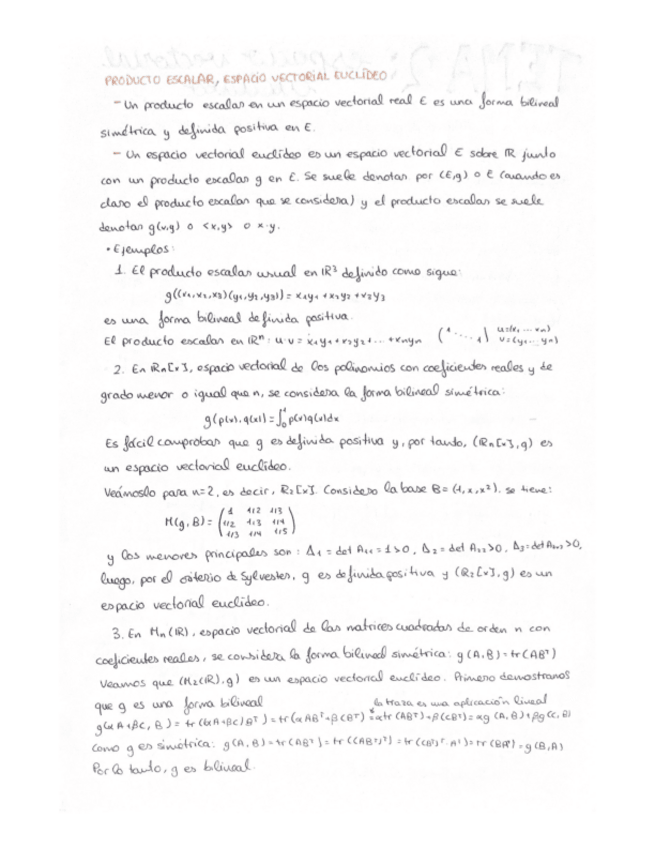 PRODUCTO ESCALAR, ESPACIO VECTORIAL EUCLÍDEO
- Un producto escalar en un espacio vectorial real E es una forma bilineal
simétrica y definida positiva en E.
- Un espacio vectorial euclídeo es un espacio vectorial E sobre ℝ junto
con un producto escalar g en E. Se suele denotar por (E,g) o E (cuando es
claro el producto escalar que se considera) y el producto escalar se suele
denotar g(v,y) o <x,y> o x·y.
• Ejemplos:
1. El producto escalar usual en ℝ³ definido como sigue:
g((x₁,x₂,x₃)(y₁,y₂,y₃)) = x₁y₁ + x₂y₂ + x₃y₃
es una forma bilineal definida positiva.
El producto escalar en ℝⁿ: u·v = x₁y₁ + x₂y₂ + ... + xₙyₙ (1 ... 1) u=(x₁ ... xₙ)
v=(y₁ ... yₙ)
2. En ℝₙ[x], espacio vectorial de los polinomios con coeficientes reales y de
grado menor o igual que n, se considera la forma bilineal simétrica:
g(p(x), q(x)) = ∫₀¹ p(x)q(x)dx
Es fácil comprobar que g es definida positiva y, por tanto, (ℝₙ[x], g) es
un espacio vectorial euclídeo.
Veámoslo para n=2, es decir, ℝ₂[x]. Considero la base B = (1, x, x²), se tiene:
M(g, B) = (1 1/2 1/3
1/2 1/3 1/4
1/3 1/4 1/5)
y los menores principales son: Δ₁ = det A₁₁ = 1 > 0, Δ₂ = det A₂₂ > 0, Δ₃ = det > 0,
luego, por el criterio de Sylvester, g es definida positiva y (ℝ₂[x], g) es un
espacio vectorial euclídeo.
3. En Mₙ(ℝ), espacio vectorial de las matrices cuadradas de orden n con
coeficientes reales, se considera la forma bilineal simétrica: g(A,B) = tr(ABᵀ)
Veamos que (M₂(ℝ), g) es un espacio vectorial euclídeo. Primero demostramos
que g es una forma bilineal
la traza es una aplicación lineal
g(αA + βC, B) = tr((αA + βC)Bᵀ) = tr(αABᵀ + βCBᵀ) = αtr(ABᵀ) + β(CBᵀ) = αg(A, B) + βg(C, B)
Como g es simétrica: g(A, B) = tr(ABᵀ) = tr((ABᵀ)ᵀ) = tr((Bᵀ)ᵀ · Aᵀ) = tr(BAᵀ) = g(B,A)
Por lo tanto, g es bilineal.